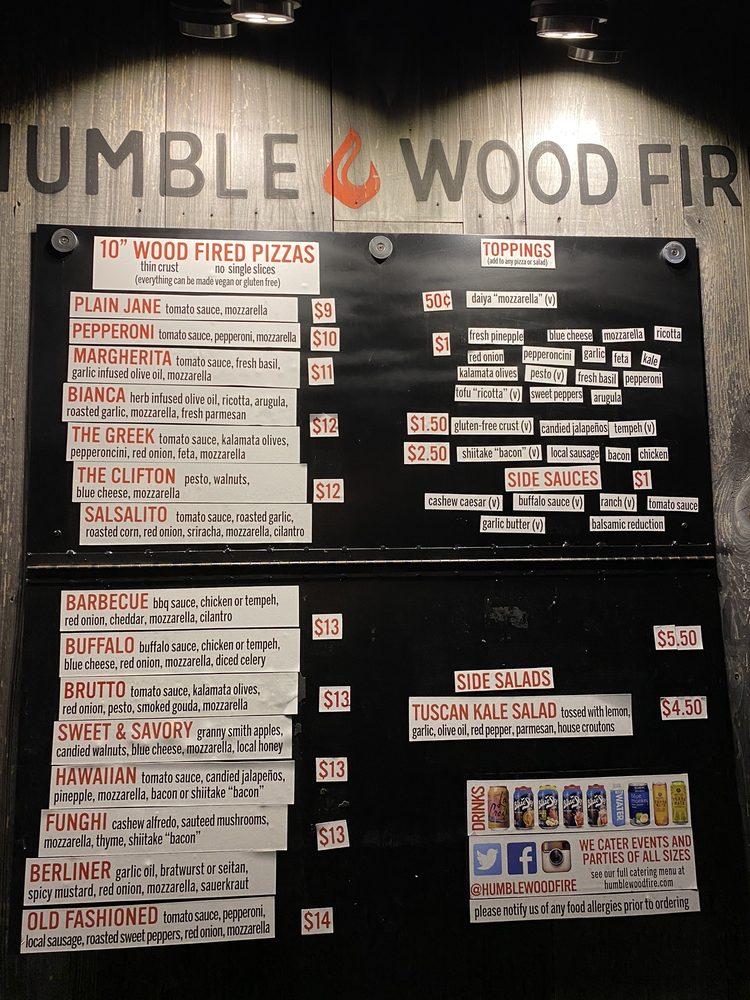 HUMBLE WOOD FIR
10" WOOD FIRED PIZZAS
thin crust no single slices
(everything can be made vegan or gluten free)
PLAIN JANE tomato sauce, mozzarella
$9
PEPPERONI tomato sauce, pepperoni, mozzarella
$10
MARGHERITA tomato sauce, fresh basil,
garlic infused olive oil, mozzarella
$11
BIANCA herb infused olive oil, ricotta, arugula,
roasted garlic, mozzarella, fresh parmesan
$12
THE GREEK tomato sauce, kalamata olives,
pepperoncini, red onion, feta, mozzarella
THE CLIFTON pesto, walnuts,
blue cheese, mozzarella
$12
SALSALITO tomato sauce, roasted garlic,
roasted corn, red onion, sriracha, mozzarella, cilantro
BARBECUE bbq sauce, chicken or tempeh,
red onion, cheddar, mozzarella, cilantro
$13
BUFFALO buffalo sauce, chicken or tempeh,
blue cheese, red onion, mozzarella, diced celery
BRUTTO tomato sauce, kalamata olives,
red onion, pesto, smoked gouda, mozzarella
$13
SWEET & SAVORY granny smith apples,
candied walnuts, blue cheese, mozzarella, local honey
HAWAIIAN tomato sauce, candied jalapeños,
pinepple, mozzarella, bacon or shiitake "bacon"
$13
FUNGHI cashew alfredo, sauteed mushrooms,
mozzarella, thyme, shiitake "bacon"
$13
BERLINER garlic oil, bratwurst or seitan,
spicy mustard, red onion, mozzarella, sauerkraut
OLD FASHIONED tomato sauce, pepperoni,
local sausage, roasted sweet peppers, red onion, mozzarella
$14
TOPPINGS
(add to any pizza or salad)
50¢ daiya "mozzarella" (v)
$1 fresh pinepple blue cheese mozzarella ricotta
red onion pepperoncini garlic feta kale
kalamata olives pesto (v) fresh basil pepperoni
tofu "ricotta" (v) sweet peppers arugula
$1.50 gluten-free crust (v) candied jalapeños tempeh (v)
$2.50 shiitake "bacon" (v) local sausage bacon chicken
SIDE SAUCES $1
cashew caesar (v) buffalo sauce (v) ranch (v) tomato sauce
garlic butter (v) balsamic reduction
$5.50
SIDE SALADS
TUSCAN KALE SALAD tossed with lemon,
garlic, olive oil, red pepper, parmesan, house croutons
$4.50
DRINKS
WATER
WE CATER EVENTS AND
PARTIES OF ALL SIZES
see our full catering menu at
humblewoodfire.com
@HUMBLEWOODFIRE
please notify us of any food allergies prior to ordering